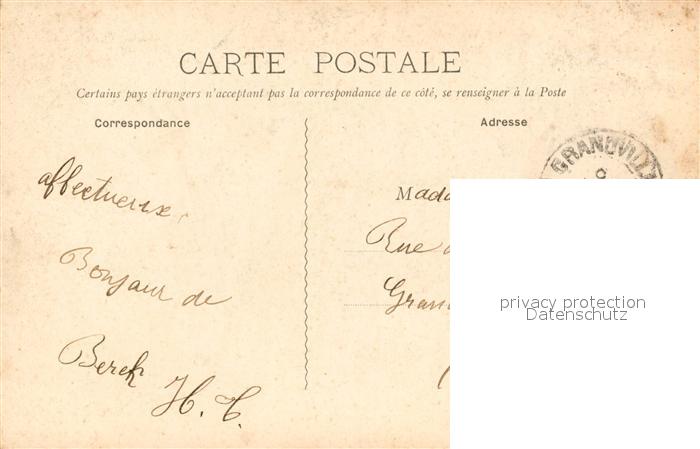 CARTE POSTALE
Certains pays étrangers n'acceptent pas la correspondance de ce côté, se renseigner à la Poste
Correspondance
Adresse
affectueux
Bonjour de
Berck
H. C.
GRANDVILL
Mada
Rue
Gran
privacy protection
Datenschutz